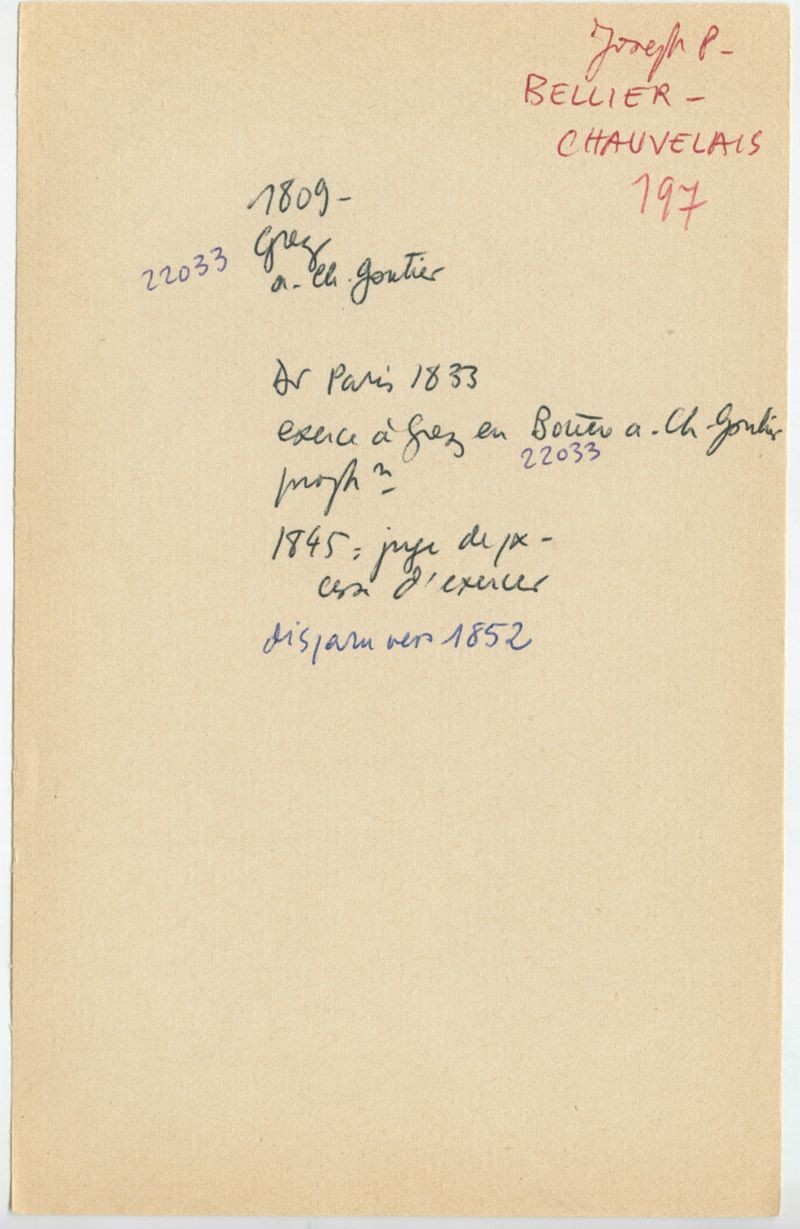 Joseph P-
BELLIER-
CHAUVELAIS
197
1809-
Grez
22033
a. Ch. Gontier
Dr Paris 1833
exerce à Grez en Bouère a. Ch. Gontier
22033
1845: juge de px-
cesse d'exercer
disparu vers 1852